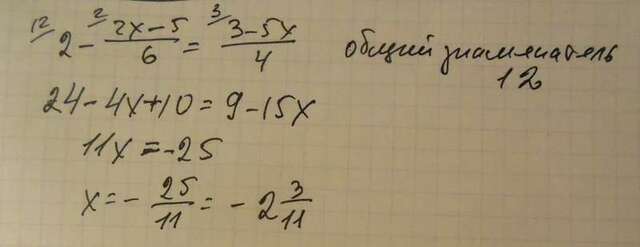 12/ 2 - 2/ (2x-5)/6 = 3/ (3-5x)/4 общий знаменатель
12
24-4x+10=9-15x
11x=-25
x=- 25/11 = - 2 3/11